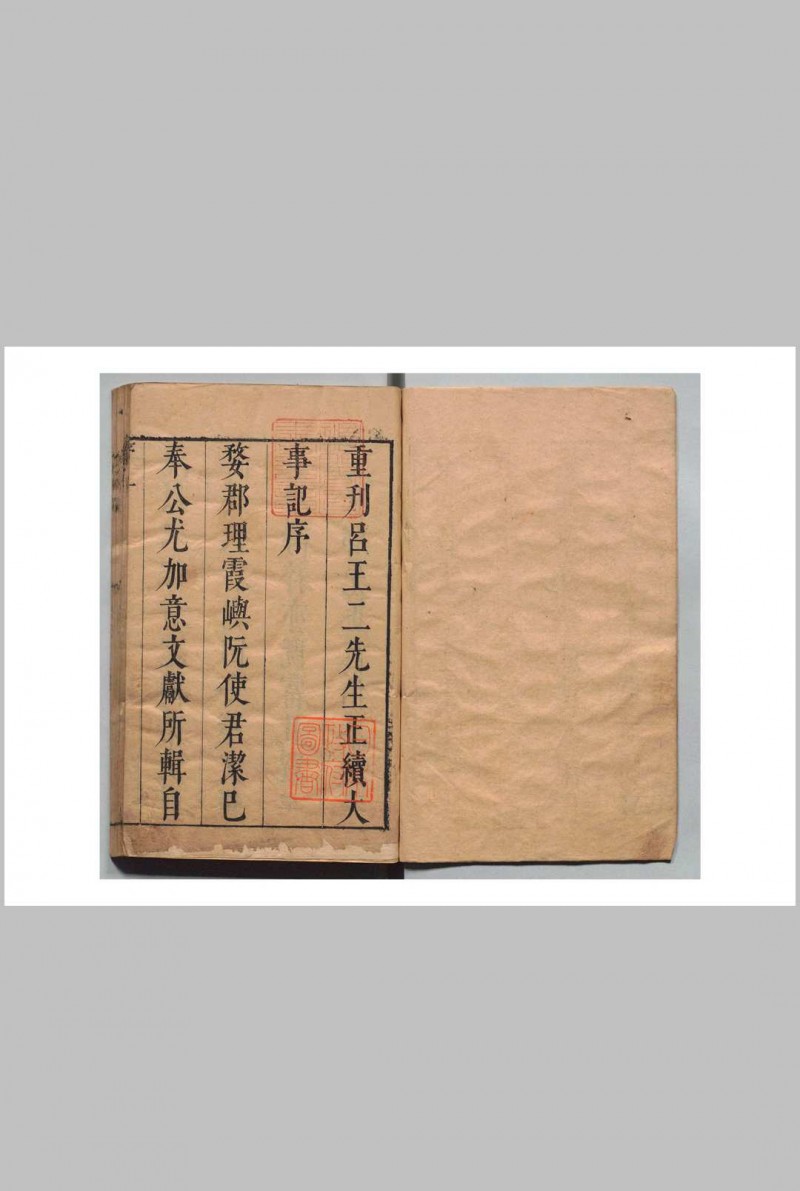 重刋呂王二先生正續大
事記序
婺郡理霞嶼阮使君潔已
奉公尤加意文獻所輯自
序
一
圖書